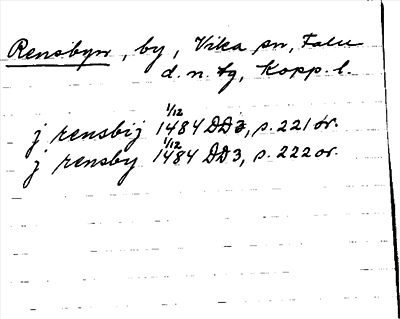 Rensbyn, by, Vika sn, Falu
d. n. tg, Kopp. l.
j rensbij 1/12 1484 DD3, s. 221 or.
j rensby 1/12 1484 DD3, s. 222 or.